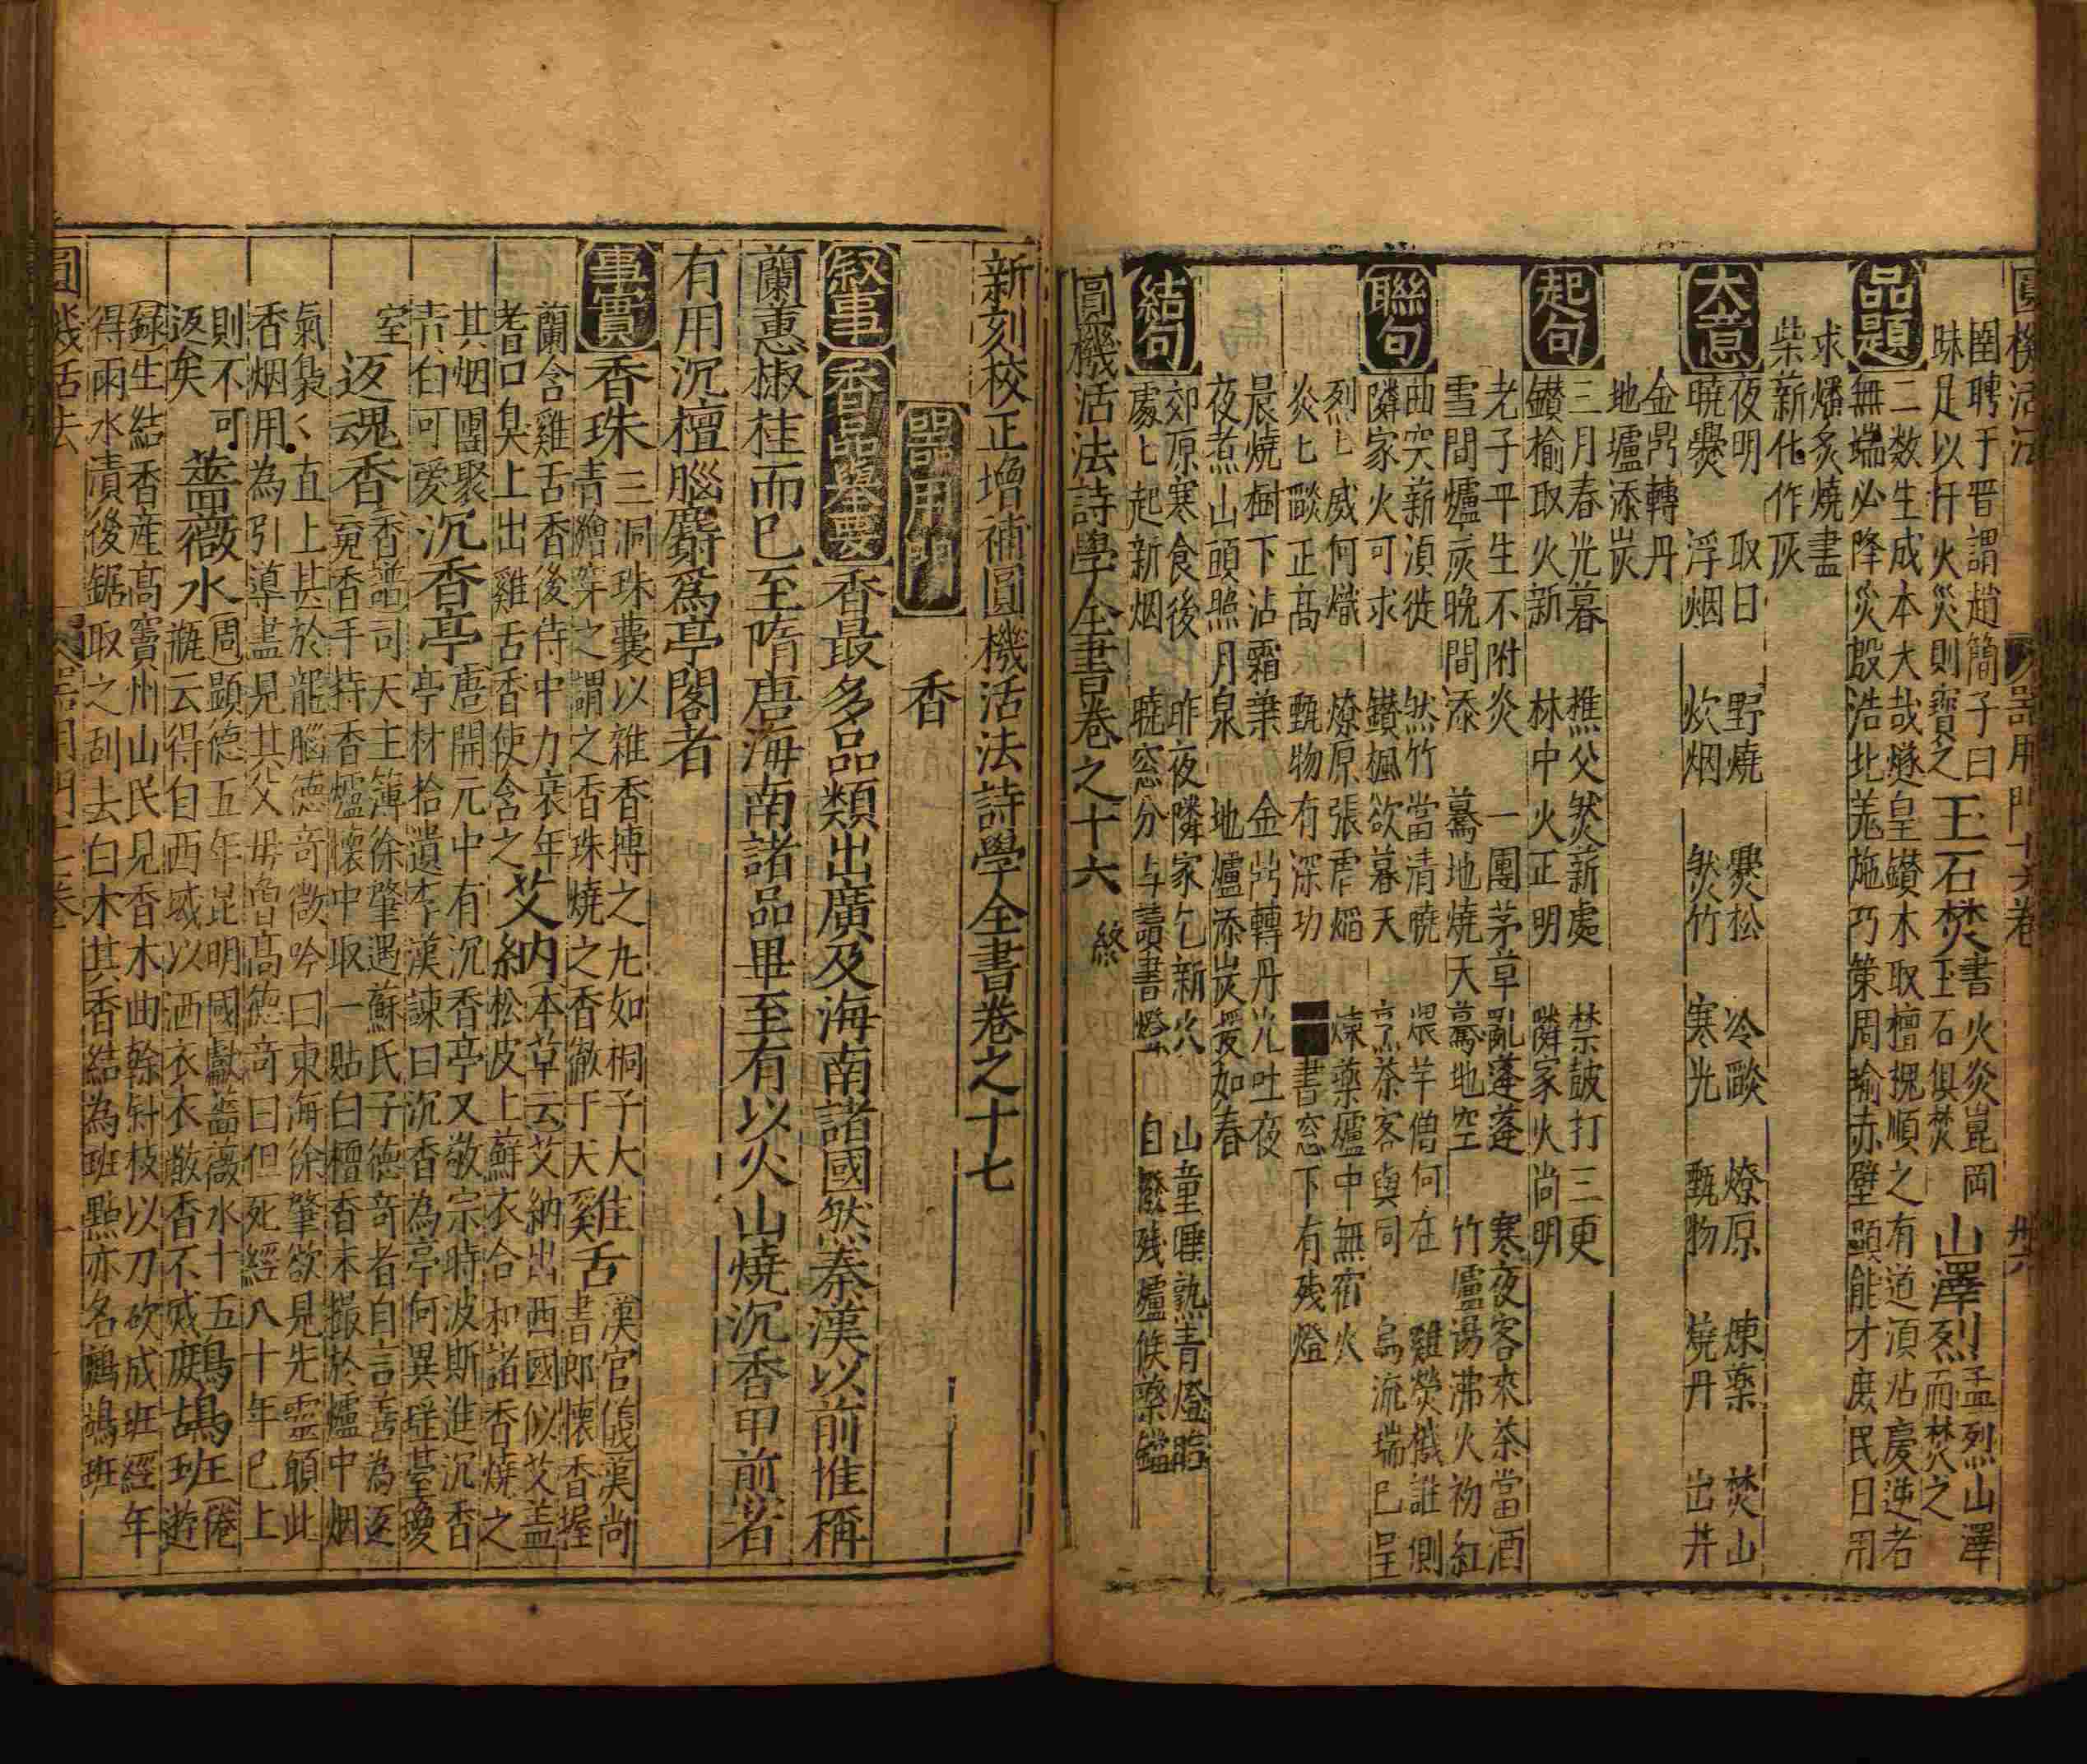 圍聘于晋謂趙簡子曰 玉石焚 書火炎崑岡 山澤烈 孟烈山澤
昧足以扞火災則寶之 玉石俱焚 而焚之
品題 二数生成本大哉燧皇鑚木取檀槐順之有道湏占慶逆者
無端必降災殷浩北羌施巧策周瑜赤壁顕能才庻民日用
求燔炙燒畫
柴薪化作灰
大意 夜明 取日 野燒 爨松 冷燄 燎原 煉藥 焚山
曉爨 浮烟 炊烟 然竹 寒光 甄物 燒丹 出井
金鼎轉丹
地爐添炭
起句 三月春光暮 樵父然薪處 禁鼓打三更
鑚榆取火新 林中火正明 隣家火尚明
老子平生不附炎 一團茅草亂蓬蓬 寒夜客來茶當酒
雪間爐灰晚間添 驀地燒天驀地空 竹爐湯沸火初紅
聯句 曲突薪湏徙 然竹當清曉 煨芋僧何在 雞熒檝誰側
隣家火可求 鑚楓欲暮天 烹茶客與同 烏流瑞已呈
烈匕威何熾 燎原張虐焰 煉藥爐中無宿火
炎匕燄正高 甄物有深功 書窓下有残燈
晨燒樹下沾霜葉 金鼎轉丹光吐夜
夜煮山頭照月泉 地爐添炭援如春
結句 郊原寒食後 昨夜隣家乞新火 山童睡熟青燈暗
處匕起新烟 曉窓分与讀書燈 自撥残爐候藥鐺
圓機活法詩學全書卷之十六 終
新刻校正增補圓機活法詩學全書卷之十七
器用門
香
叙事 香品舉要 香最多品類出廣及海南諸國然秦漢以前惟稱
蘭蕙椒桂而已至隋唐海南諸品畢至有以火山燒沉香甲煎者
有用沉檀腦麝爲亭閣者
事實 香珠 三洞珠囊以雜香搏之九如桐子大 雞舌 漢官儀漢尚
青繒穿之謂之香珠燒之香徹于天 書郎懐香握
蘭含雞舌香後侍中力衰年 艾納 本草云艾納出西國似艾盖
耆口臭上出雞舌香使含之 松皮上蘚衣合和諸香燒之
其烟團聚 沉香亭 唐開元中有沉香亭又敬宗時波斯進沉香
青白可愛 亭材拾遺李漢諫曰沉香為亭何異瑶基瓊
室 返魂香 香譜司天主簿徐肇遇蘇氏子德竒者自言善為返
䰟香手持香爐懐中取一貼白檀香末撮於爐中烟
氣裊〻直上甚於龍腦德竒微吟曰東海徐肇欲見先靈願此
香烟用為引導盡見其父毋曽髙德竒曰但死經八十年已上
則不可 薔薇水 周顕德五年昆明國獻薔薇水十五 鷓鴣班 倦
返矣 瓶云得自西域以洒衣衣敝香不㓕 遊
録生結香産高竇州山民見香木曲幹斜枝以刀砍成班經年
得雨水漬後鋸取之刮去白木其香結為班㸃亦名鷓鴣班